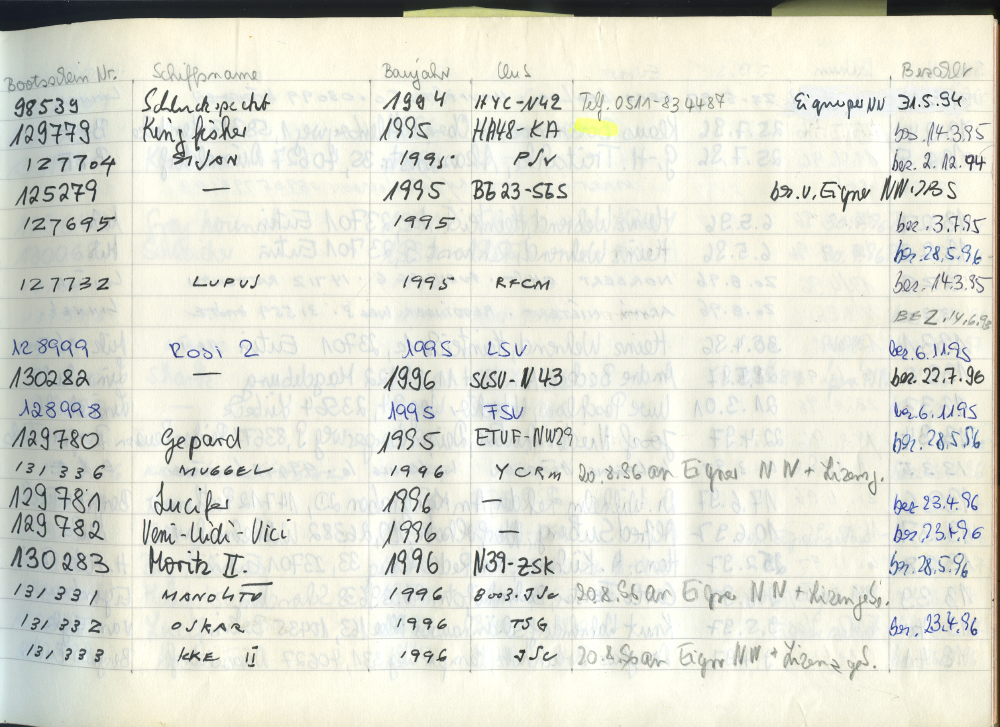 Bootsschein Nr. Schiffsname Baujahr Bezahlt
98539 Schluckspecht 1994 HYC-N42 Telf. 0511-834487 Eigner per NN 31.5.94
129779 Kingfisher 1995 HA48-KA bez. 14.3.95
127704 1995 PSV bez. 2.12.94
125279 — 1995 BE23-SES bez. v. Eigner NN
127695 1995 bez. 3.7.95
bez. 28.5.96
127732 LUPUS 1995 RFCM bez. 14.3.95
BEZ. 14.6.
128999 ROSI 2 1995 LSV bez. 6.11.95
130282 — 1996 SCSV-N43 bez. 22.7.96
128998 1995 FSV bez. 6.11.95
129780 Gepard 1995 ETUF-NW29 bez. 28.5.96
131336 MUGGEL 1996 YCRM 20.8.96 an Eigner NN + Lizenz.
129781 Lucifer 1996 — bez. 23.4.96
129782 Veni-Vidi-Vici 1996 — bez. 23.4.96
130283 Moritz II. 1996 N39-ZSK bez. 28.5.96
131331 1996 B003.JSC 20.8.96 an Eigner NN + Lizenzgeb.
131332 OSKAR 1996 TSG bez. 23.4.96
131333 KKE II 1996 JSC 20.8.96 an Eigner NN + Lizenzgeb.